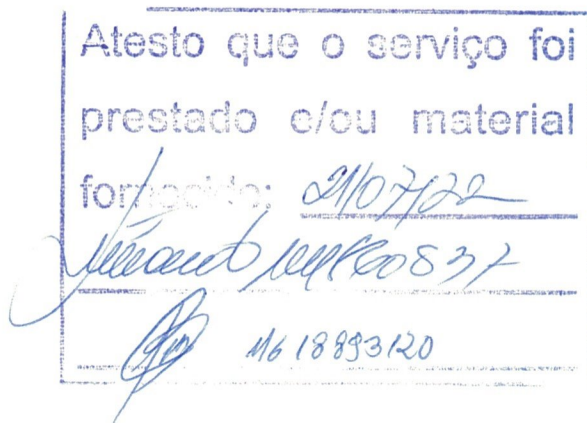 Atesto que o serviço foi
prestado e/ou material
fornecido: 21/07/22
MG 18893120